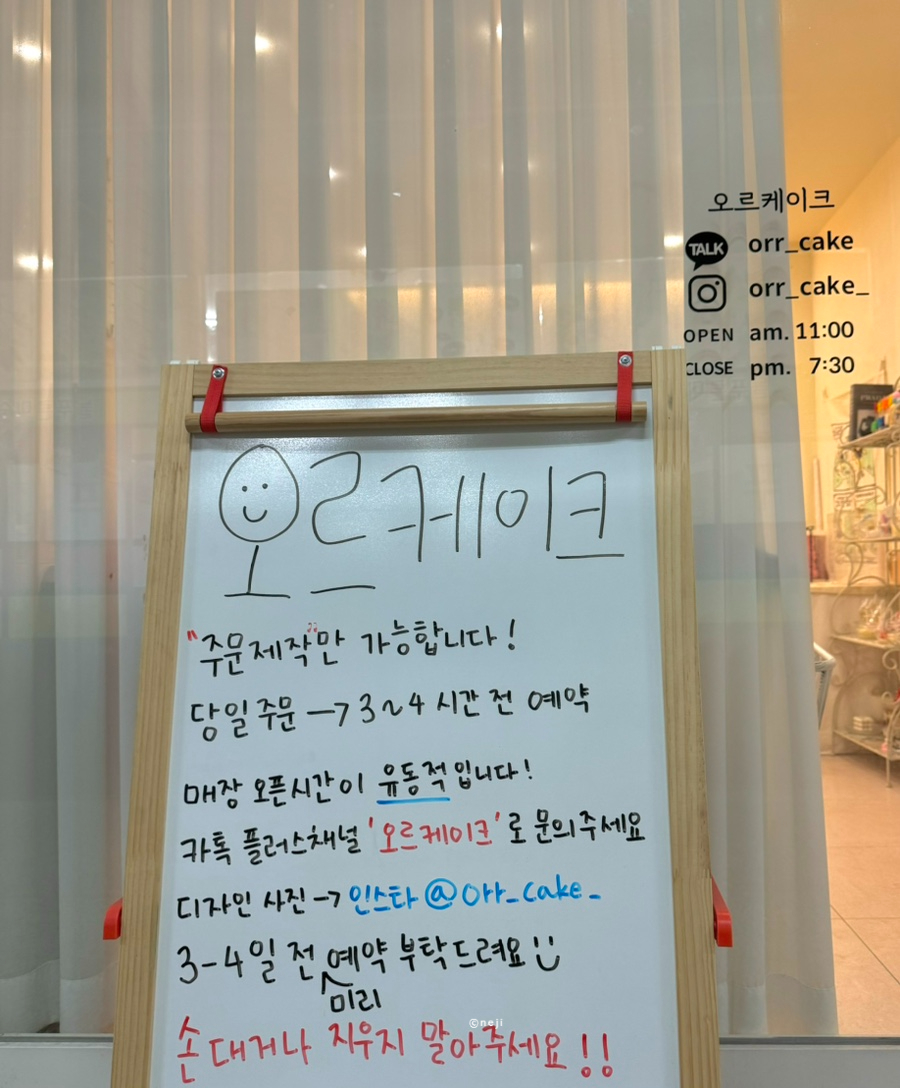 오르케이크
TALK orr_cake
orr_cake_
OPEN am. 11:00
CLOSE pm. 7:30
오르케이크
"주문제작"만 가능합니다!
당일주문 → 3~4 시간 전 예약
매장 오픈시간이 유동적입니다!
카톡 플러스채널 '오르케이크'로 문의주세요
디자인 사진 → 인스타 @orr_cake_
3-4일 전 미리 예약 부탁드려요
손대거나 지우지 말아주세요!!
©neji